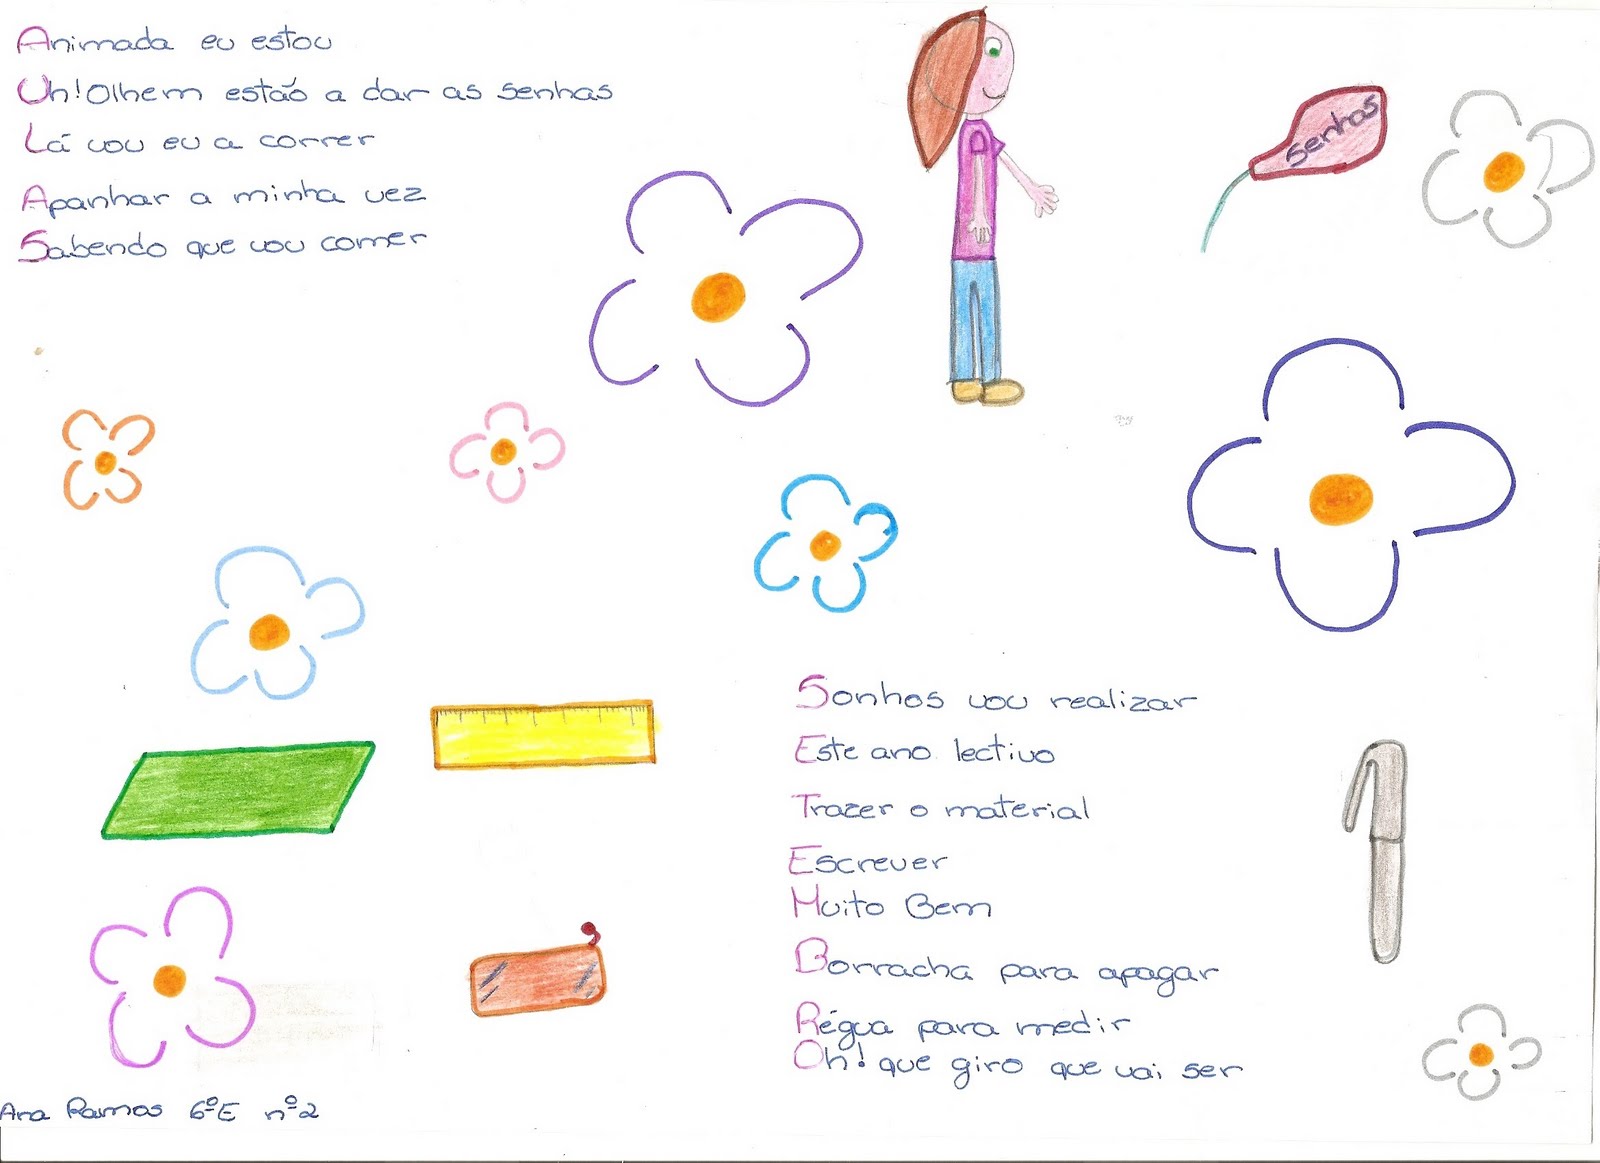 Animada eu estou
Uh! Olhem estão a dar as senhas
Lá vou eu a correr
Apanhar a minha vez
Sabendo que vou comer
senhas
Sonhos vou realizar
Este ano lectivo
Trazer o material
Escrever
Muito Bem
Borracha para apagar
Régua para medir
Oh! que giro que vai ser
Ana Ramos 6ºE nº2